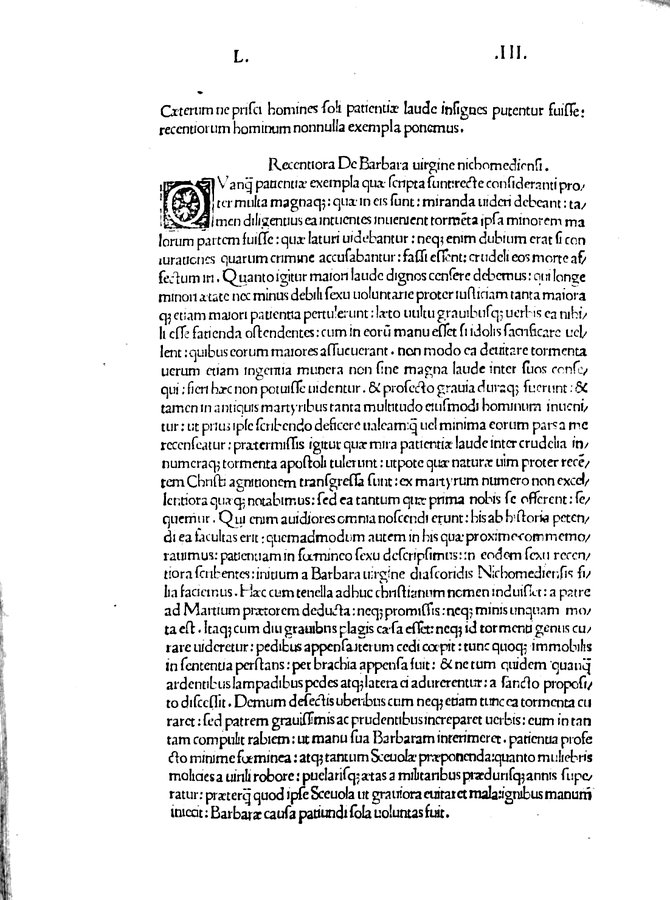 L. .III.
Cæterum ne prisci homines soli patientiæ laude insignes putentur fuisse:
recentiorum hominum nonnulla exempla ponemus.
Recentiora De Barbara uirgine nichomediensi.
QVanq̃ patientiæ exempla quæ scripta sunt: recte consideranti pro/
ter multa magnaq;: quæ in eis sunt: miranda uideri debeant: ta/
men diligentius ea intuentes inuenient tormẽta ipsa minorem ma
lorum partem fuisse: quæ laturi uidebantur: neq; enim dubium erat si con
iurationes quarum crimine accusabantur: fassi essent: crudeli eos morte af/
fectum iri. Quanto igitur maiori laude dignos censere debemus: qui longe
minori ætate nec minus debili sexu uoluntarie propter iusticiam tanta maiora
q; etiam maiori patientia pertulerunt: læto uultu grauibusq; uerbis ea nihi/
li esse facienda ostendentes: cum in eorũ manu esset si idolis sacrificare uel/
lent: quibus eorum maiores assueuerant. non modo ea deuitare tormenta
uerum etiam ingentia munera non sine magna laude inter suos conse/
qui: fieri hæc non potuisse uidentur. & profecto grauia duraq; fuerunt: &
tamen in antiquis martyribus tanta multitudo eiusmodi hominum inueni/
tur: ut prius ipse scribendo deficere ualeam: q̃ uel minima eorum pars a me
recenseatur: prætermissis igitur quæ mira patientiæ laude inter crudelia in/
numeraq; tormenta apostoli tulerunt: utpote quæ naturæ uim proter recẽ/
tem Christi agnitionem transgressa sunt: ex martyrum numero non excel/
lentiora quæq; notabimus: sed ea tantum quæ prima nobis se offerent: se/
quemur. Qui enim auidiores omnia noscendi erunt: his ab historia peten/
di ea facultas erit: quemadmodum autem in his quæ proxime commemo/
rauimus: patientiam in fœmineo sexu descripsimus: in eodem sexu recen/
tiora scribentes: initium a Barbara uirgine diascoridis Nichomediensis fi/
lia faciemus. Hæc cum tenella adhuc christianum nomen induisset: a patre
ad Martium prætorem deducta: neq; promissis: neq; minis unquam mo/
ta est. Itaq; cum diu grauibus plagis cæsa esset: neq; id tormenti genus cu/
rare uideretur: pedibus appensa iterum cedi cœpit: tunc quoq; immobilis
in sententia perstans: per brachia appensa fuit: & ne tum quidem quanq̃
ardentibus lampadibus pedes atq; latera ei adurerentur: a sancto proposi/
to discessit. Demum desectis uberibus cum neq; etiam tunc ea tormenta cu
raret: sed patrem grauissimis ac prudentibus increparet uerbis: eum in tan
tam compulit rabiem: ut manu sua Barbaram interimeret. patientia profe
cto minime fœminea: atq; tantum Sceuolæ præponenda: quanto muliebris
molicies a uirili robore: puelarisq; ætas a militaribus prædurisq; annis supe/
ratur: præterq̃ quod ipse Sceuola ut grauiora euitaret mala: ignibus manum
iniecit: Barbaræ causa patiundi sola uoluntas fuit.